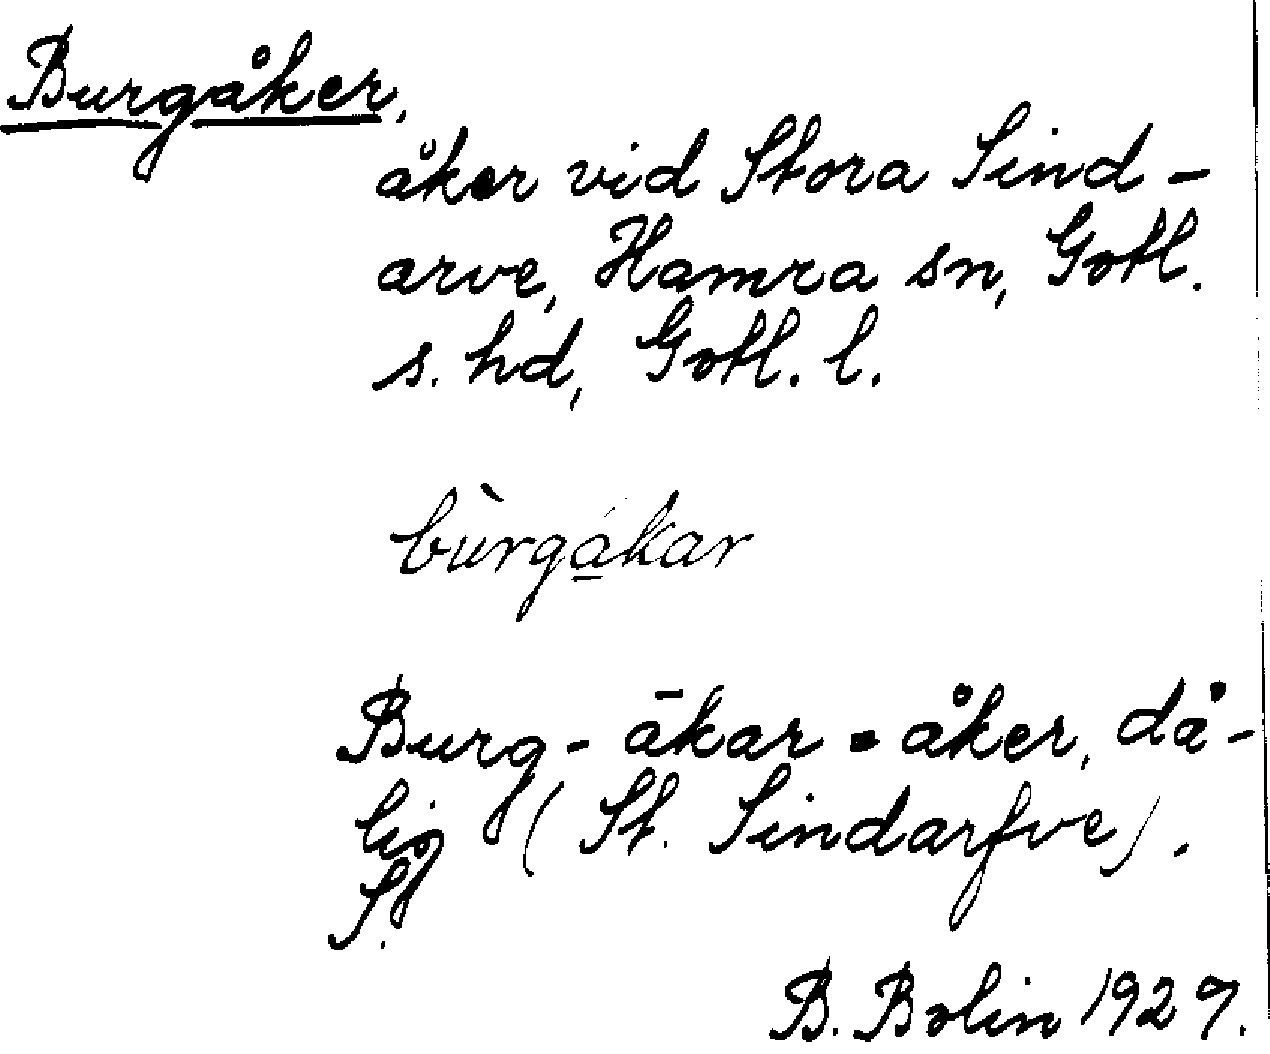 Burgåker,
åker vid Stora Sind-
arve, Hamra sn, Gotl.
s. hd, Gotl. l.
bùrgá̲kar
Burg-ākar = åker, då-
lig (St. Sindarfve).
S.
B. Bolin 1929.